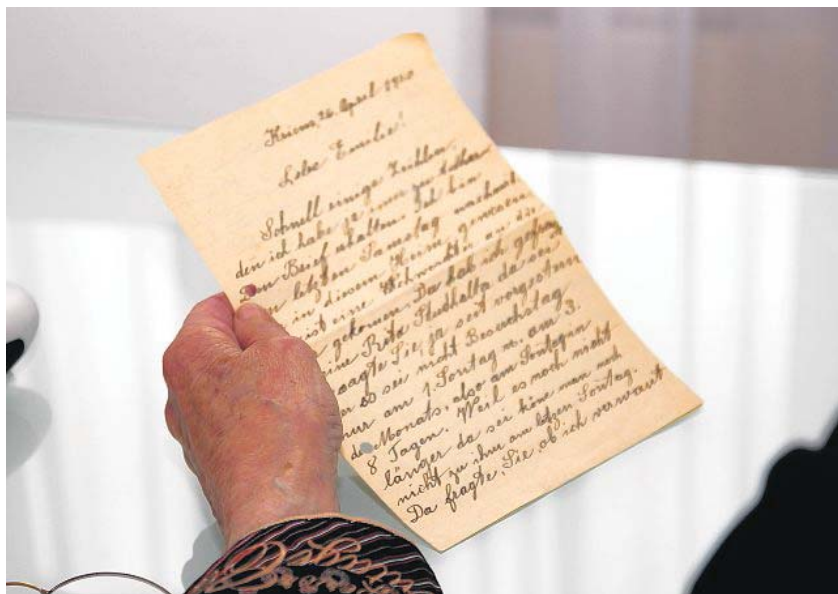 Kriens, 26. April 1950
Liebe Emilie!
Schnell einige Zeihlen,
den ich habe ja
Brief erhalten. Ich bin
letzten Samstag nachmit
in diesem Heim gewesen
ist eine Schwester an die
gekomen. Da hab ich gefragt
Rita Studhalter da sei
sagte Sie, ja seit vorgestern
er es sei nicht Besuchstag
nur am 1. Sontag n. am 3.
des Monats, also am Sontag in
8 Tagen. Weil es noch nicht
länger da sei köne man noch
nicht zu ihm am letzen Sontag.
Da fragte, Sie ob ich verwant